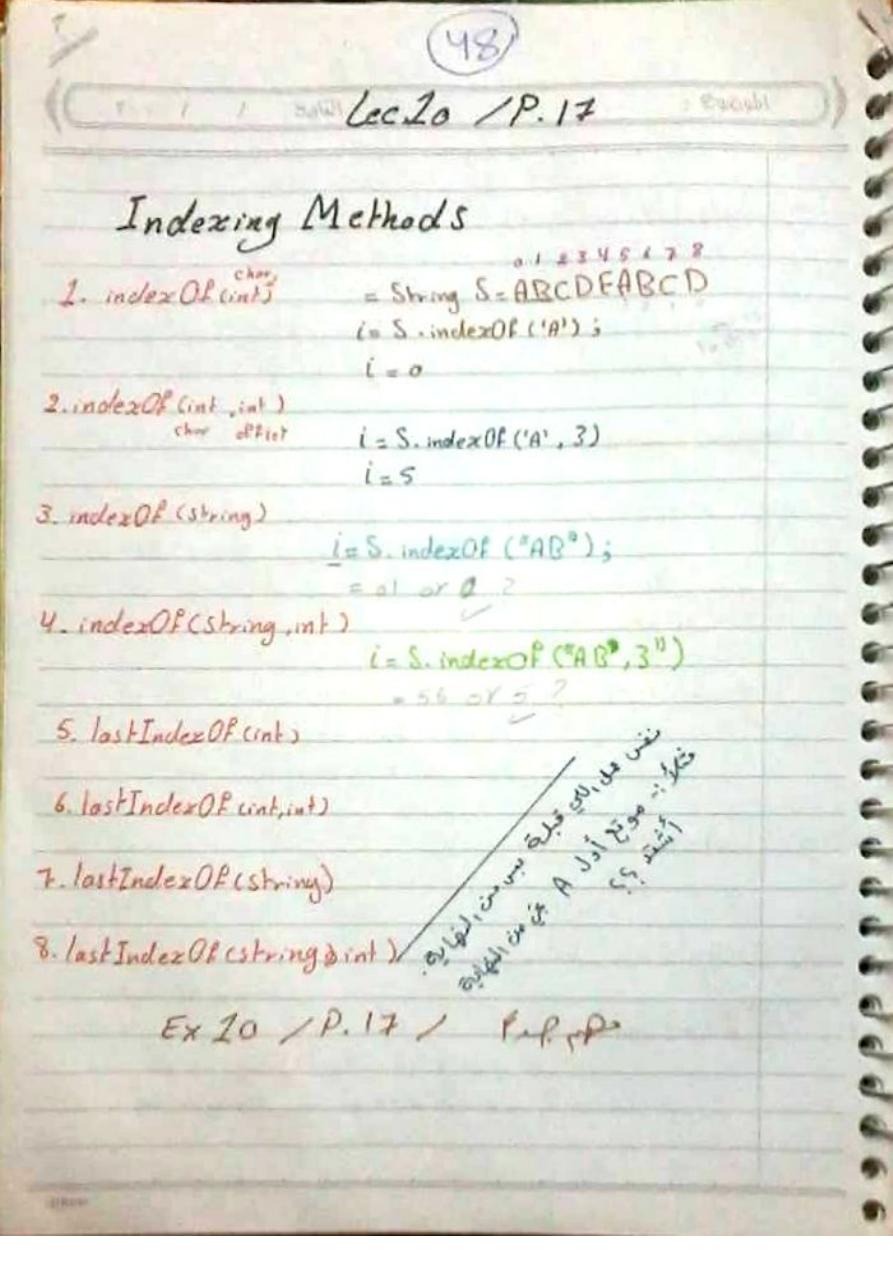 48
Lec 10 / P.17
Indexing Methods
0 1 2 3 4 5 6 7 8
char,
1. indexOf(int) = String S=ABCDEABCD
i= S.indexOf('A');
i = 0
2. indexOf(int, int)
char offset
i = S.indexOf('A', 3)
i = 5
3. indexOf(string)
i= S.indexOf("AB");
= 01 or 0 ?
4. indexOf(string, int)
i= S.indexOf("AB", 3")
= 56 or 5 ?
5. lastIndexOf(int)
6. lastIndexOf(int,int)
7. lastIndexOf(string)
8. lastIndexOf(string, int)
نفس هل اللي قبلة بس من النهاية.
مثلاً :- موقع أول A من النهاية
؟؟
Ex 10 / P.17 / مهم